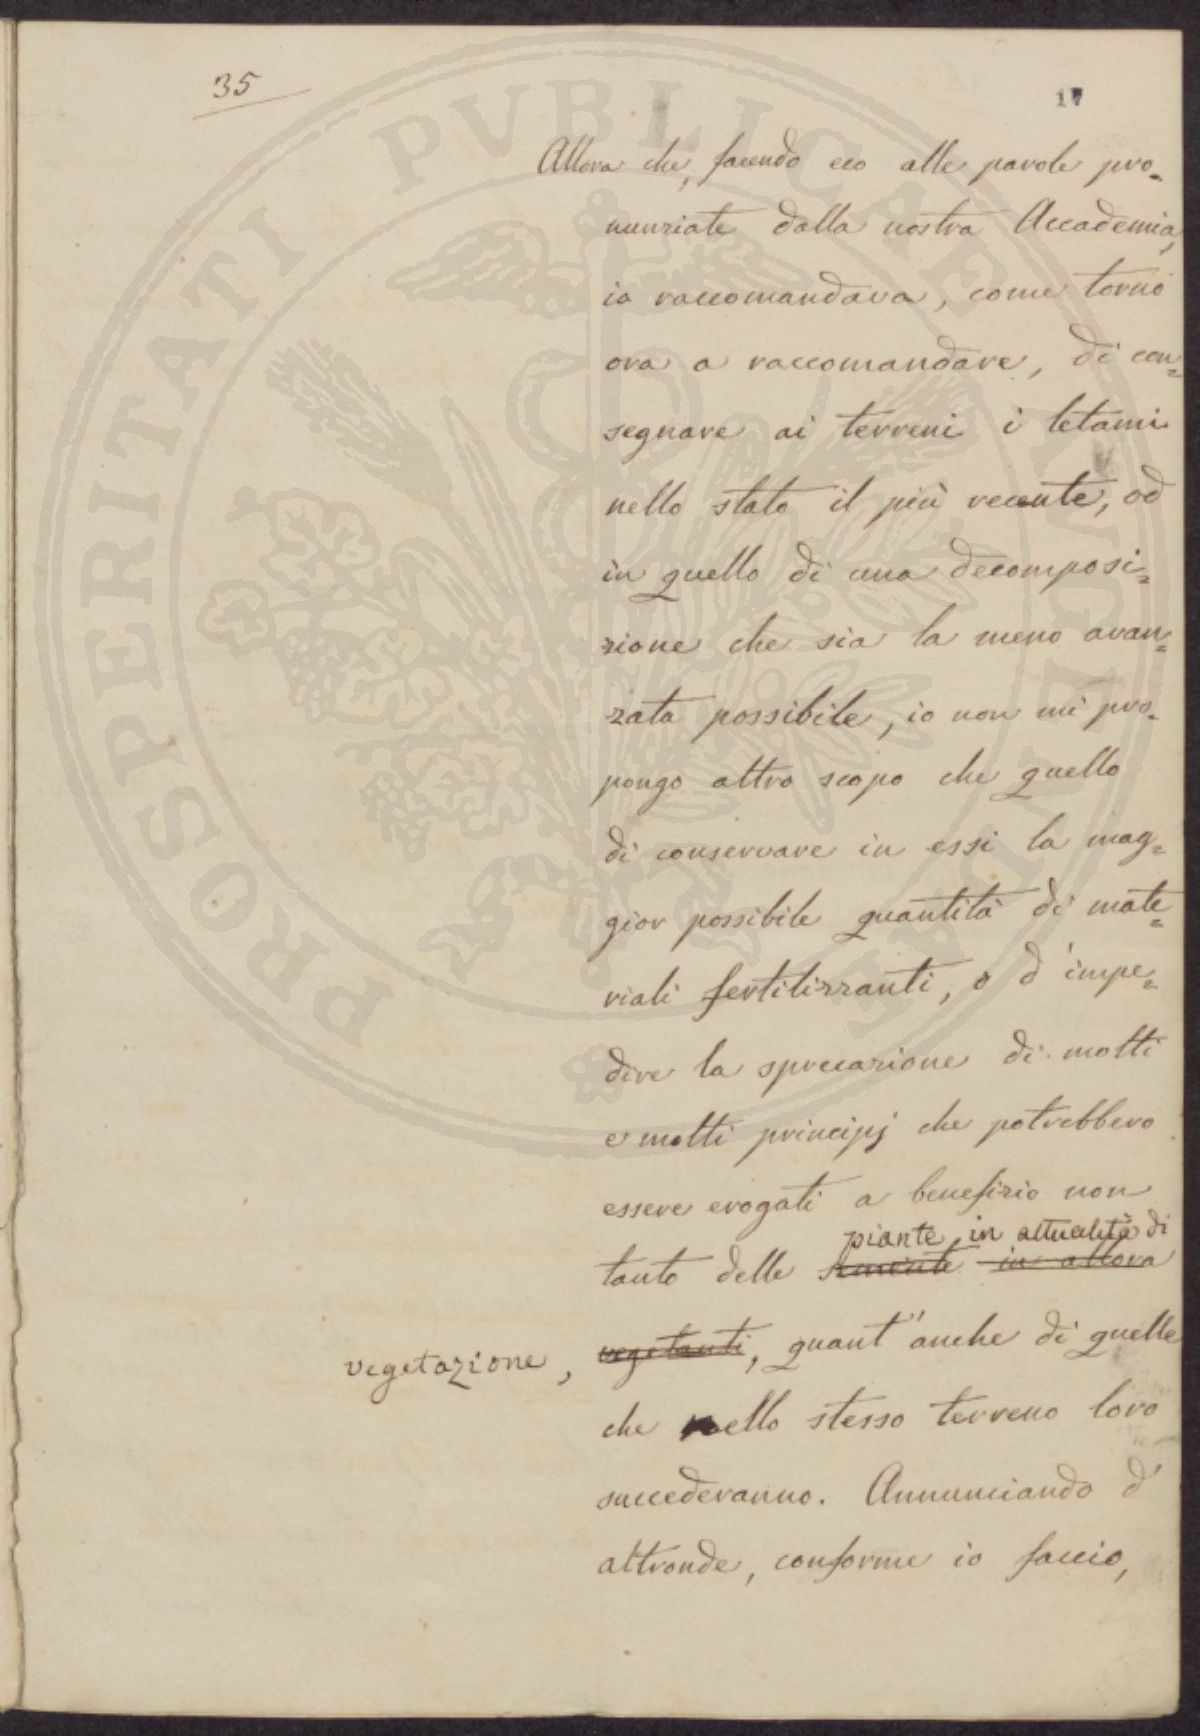 35
17
Allora che, facendo eco alle parole pro-
nunziate dalla nostra Accademia,
io raccomandava, come torno
ora a raccomandare, di con=
segnare ai terreni i letami
nello stato il più recente, od
in quello di una decomposi=
zione che sia la meno avan=
zata possibile, io non mi pro-
pongo altro scopo che quello
di conservare in essi la mag=
gior possibile quantità di mate=
riali fertilizzanti, o d'impe=
dire la sprecazione di molti
e molti principj che potrebbero
essere erogati a benefizio non
piante in attualità di
tanto delle in allora
vegetazione, vegetanti, quant'anche di quelle
che nello stesso terreno loro
succederanno. Annunciando d'
altronde, conforme io faccio,
PROSPERITATI PVBLICAE AVGENDAE